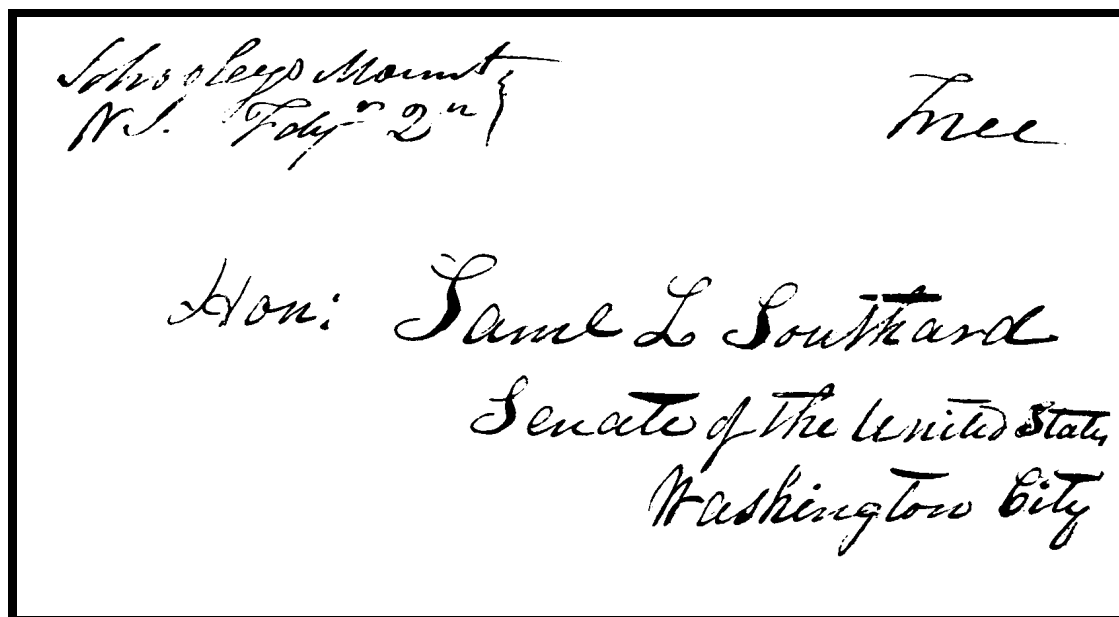 Schooleys Mount
N J. Feby 2n
Free
Hon: Saml L Southard
Senate of the United States
Washington City